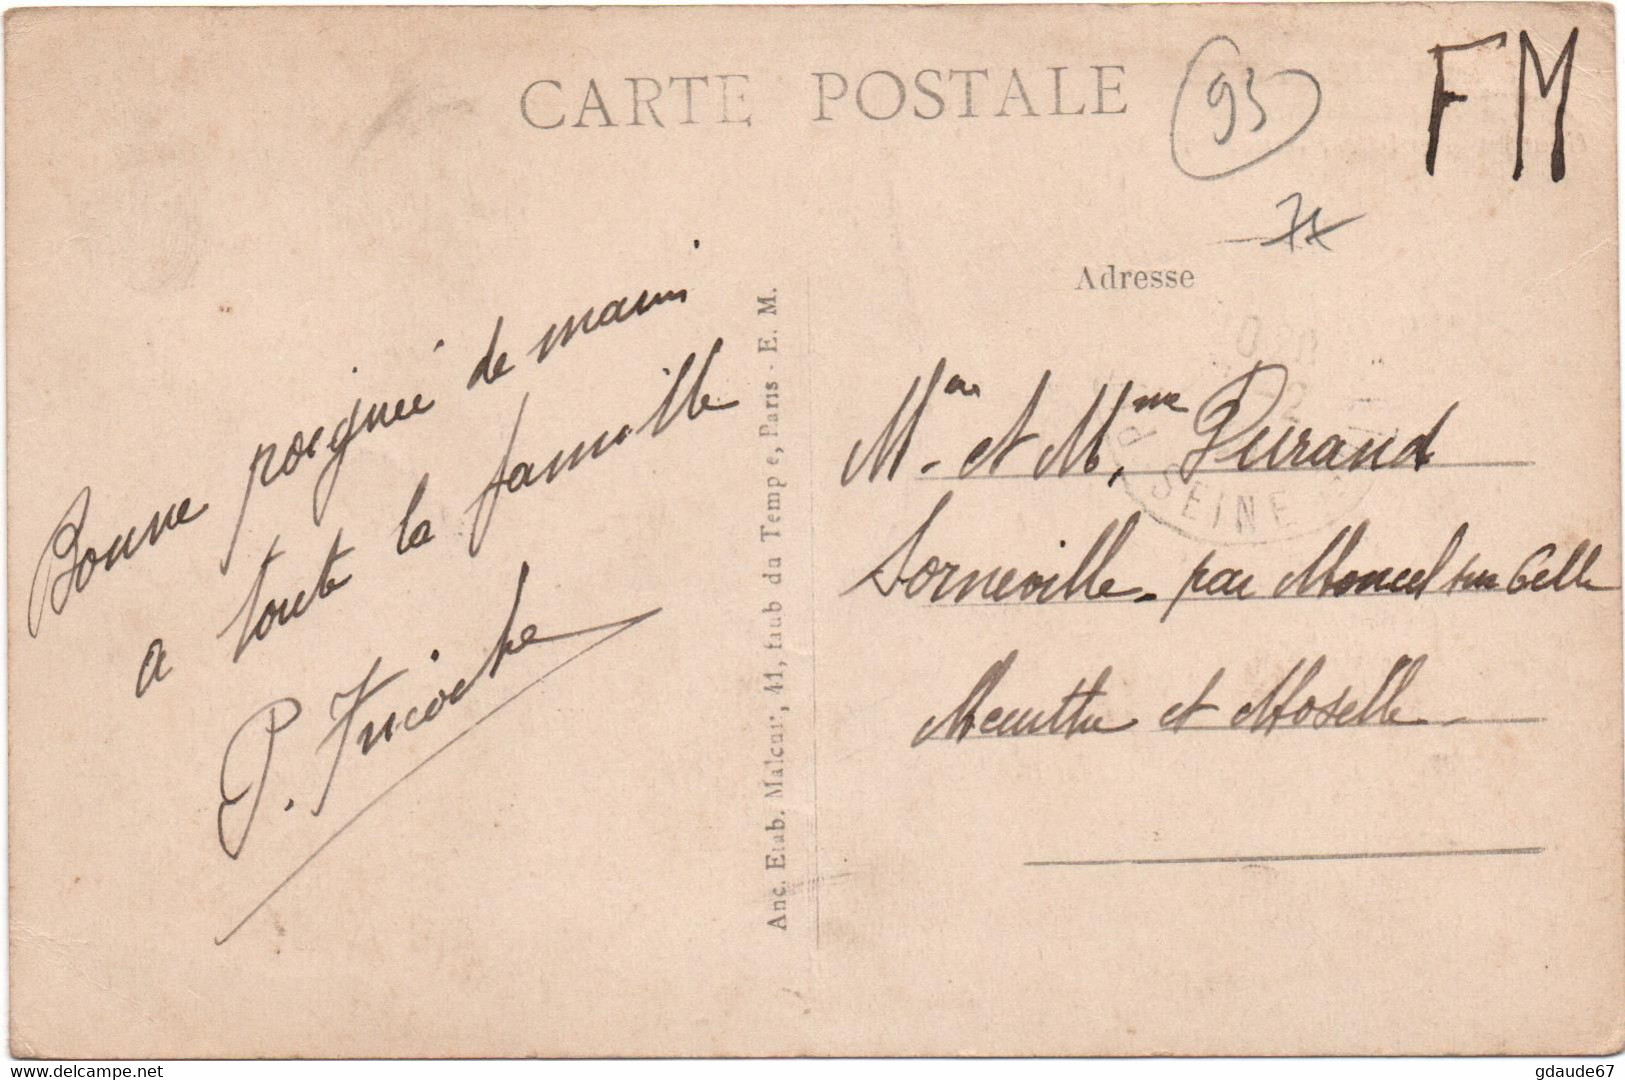 CARTE POSTALE
93
FM
77
Adresse
Bonne poignée de main
a toute la famille
P. Fricoche
Anc. Etab. Malcuit, 41, faub du Temple, Paris - E. M.
Mr et Mme Durand
Sorneville - par Moncel sur Seille
Meurthe et Moselle
SEINE
delcampe.net
gdaude67